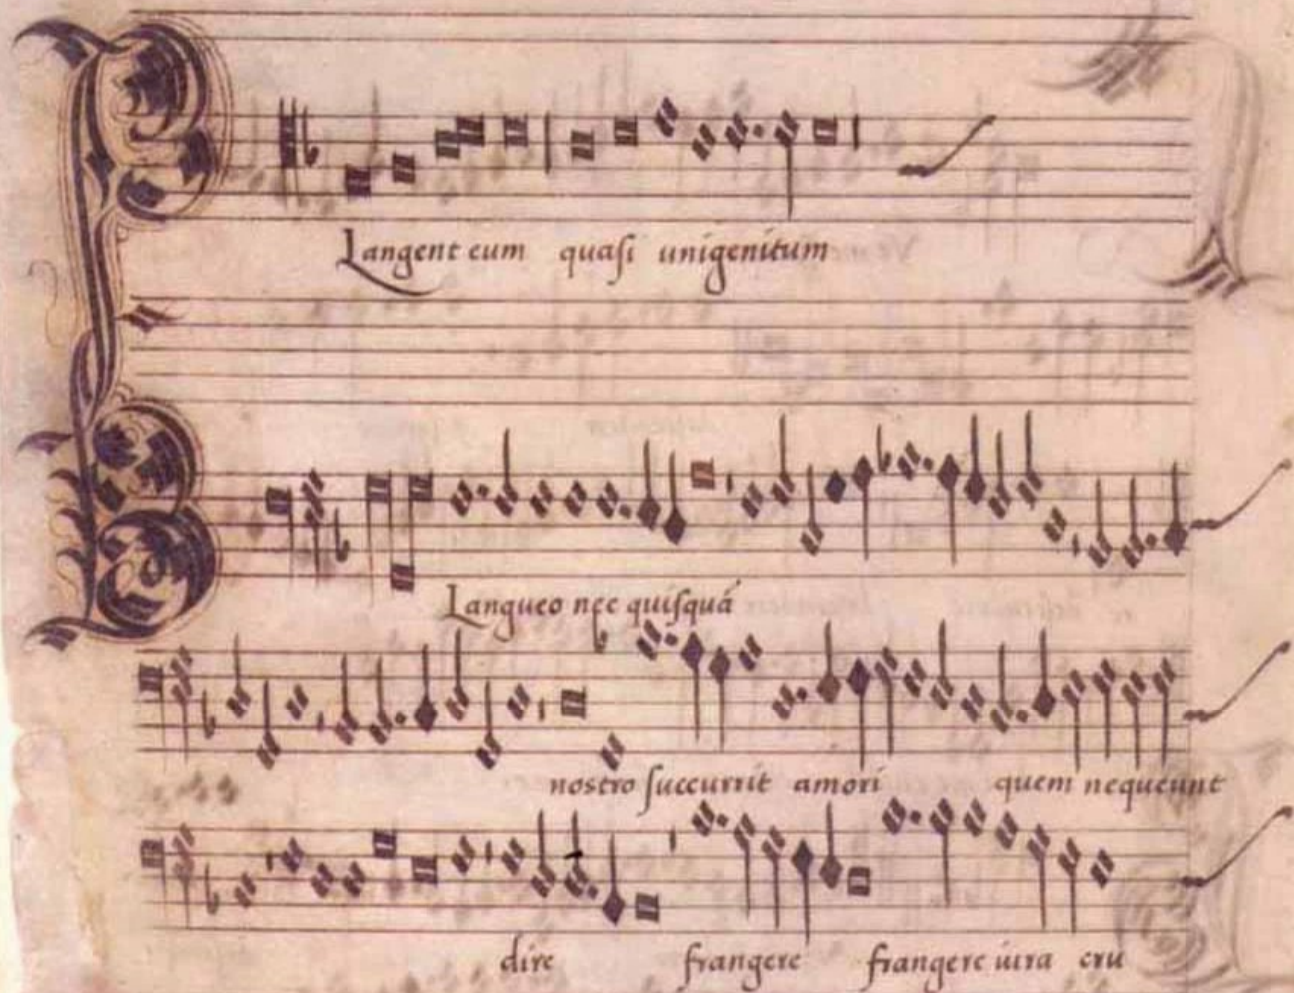 Plangent eum quasi unigenitum
Langueo nec quisquā
nostro succurrit amori quem nequeunt
dire frangere frangere iura cru